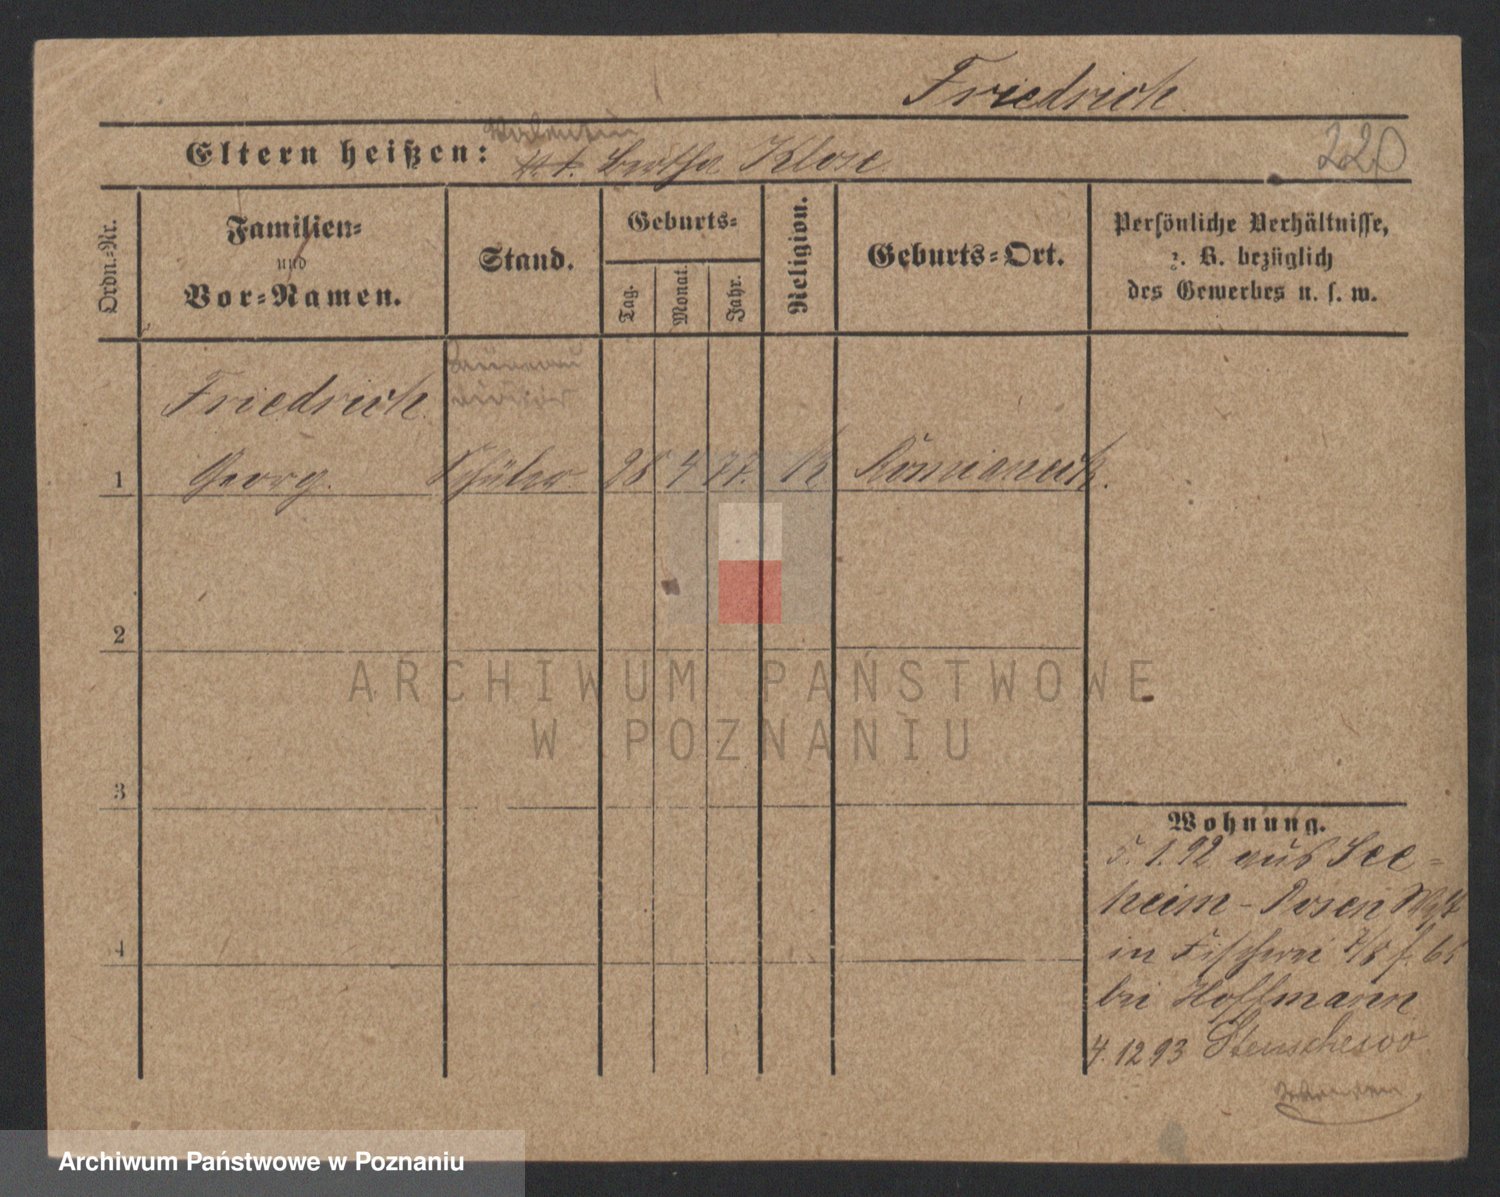 Friedrich
Valentin
Eltern heißen: Bertha Klose
220
Ordn.-Nr.
Familien-
und
Vor-Namen.
Stand.
Geburts-
Tag.
Monat.
Jahr.
Religion.
Geburts-Ort.
Persönliche Verhältnisse,
z. B. bezüglich
des Gewerbes u. s. w.
Friedrich
1 Georg. Schüler 28 4 77. K
2
3
4
ARCHIWUM PAŃSTWOWE
W POZNANIU
Wohnung.
5. 1. 92 aus See-
heim - Posen
in Fischerei 7/8 f. 65
bei Hoffmann
4. 12 93 Stenschewo
Archiwum Państwowe w Poznaniu